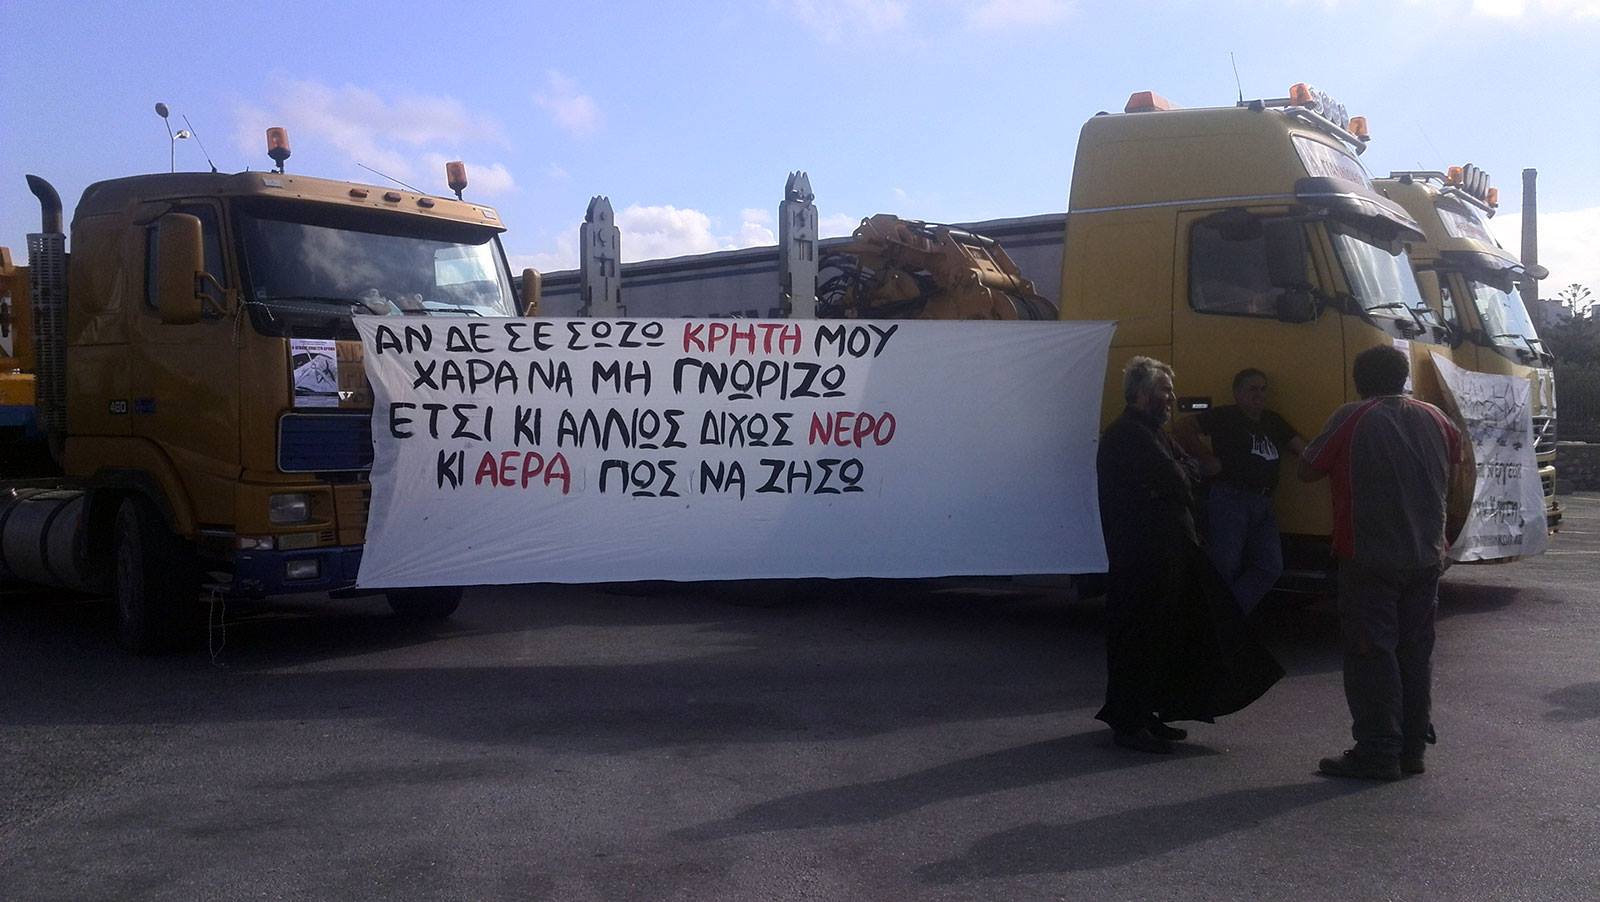 ΑΝ ΔΕ ΣΕ ΣΩΖΩ ΚΡΗΤΗ ΜΟΥ
ΧΑΡΑ ΝΑ ΜΗ ΓΝΩΡΙΖΩ
ΕΤΣΙ ΚΙ ΑΛΛΙΩΣ ΔΙΧΩΣ ΝΕΡΟ
ΚΙ ΑΕΡΑ ΠΩΣ ΝΑ ΖΗΣΩ
460